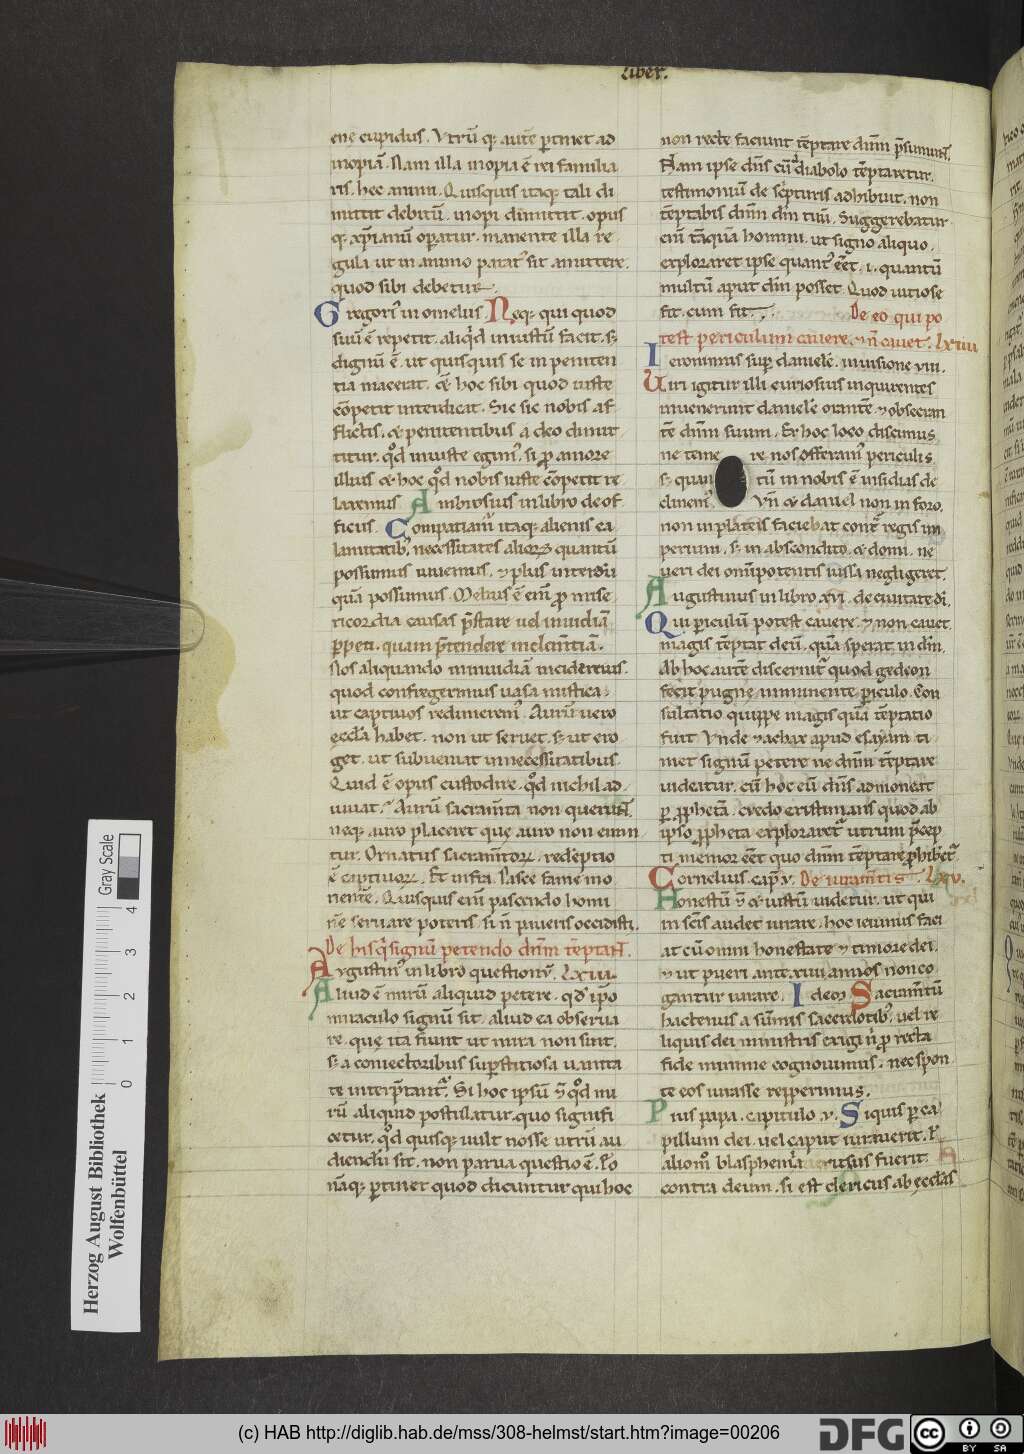 liber.
ene cupidus. Vtrū q; autē ꝑtinet ad
inopiā. Nam illa inopia ē rei familia
ris. hec animi. Quisquis itaq; tali di
mittit debitū. inopi dimittit. opus
q; xp̄ianū oꝑatur. manente illa re
gula ut in animo parat᾽ sit amittere.
quod sibi debetur.
Gregori᾽ in omelus. Neq; qui quod
suū ē repetit. aliq̇d iniustū facit. s;
dignū ē. ut quisquis se in peniten
tia macerat. & hoc sibi quod iuste
cōpetit interdicat. Sic sic nobis af
flictis. & penitentibus a deo dimit
titur. qd̓ iniuste egim᾽. si ꝓ amore
illius & hoc qd̓ nobis iuste cōpetit re
laxemus. Ambrosius in libro de of
ficus. Compatiam᾽ itaq; alienis ca
lamitatib᾽. necessitates alioꝝ quantū
possumus iuuemus. ⁊ plus interdū
quā possumus. Melius ē eni᾽ ꝓ mise
ricordia causas p̄stare uel inuidiā
ꝑpeti. quam p̄tendere inclem̄tiā.
Nos aliquando in inuidiā incidereuis.
quod confregerimus uasa mistica.
ut captiuos redimerem᾽. Aurū uero
eccl̄a habet. non ut seruet. s; ut ero
get. ut subueniat in necessitatibus.
Quid ē opus custodire. qd̓ nichil ad
iuuat. Aurū sacram̄ta non querunt.
neq; auro placeret que auro non emun
tur. Ornatus sacram̄torꝝ. redēptio
ē captiuorꝝ. Et infra. Pasce fame mo
rientē. Quisquis eni᾽ pascendo homi
nē seruare poteris. si n̄ paueris occidisti.
De his q̇ signū petendo dn̄m tēptant.
Augustin᾽ in libro question᾽. Lxiiii.
Aliud ē mirū aliquid petere. qd̓ ip̄o
miraculo signū sit. aliud ea obserua
re. que ita fiunt ut mira non sint.
s; a coniectoribus suꝑstitiosa uanita
te interp̄tant᾽. Si hoc ipsū qd̓ mi
rū aliquid postulatur. quo signifi
cetur. qd̓ quisq; uult nosse utrū au
diendū sit. non parua questio ē. Po
nāq; ꝑtinet quod dicuntur qui hoc
non recte faciunt tēptare dn̄m p̄sumunt.
Nam ipse dn̄s cū a diabolo tēptaretur.
testimoniū de sc̓pturis adhibuit. non
tēptabis dn̄m dm̄ tuū. Suggerebatur
eni᾽ tāquā homini. ut signo aliquo.
exploraret ipse quant᾽ eēt. i. quantū
multū aput dm̄ posset. Quod uitiose
fit. cum fit. De eo qui po
test periculum cauere. ⁊ n̄ cauet. Lxiiii
Ieronimus suꝑ danielē. in uisione viii.
Uiri igitur illi curiosius inquirentes
inuenerunt danielē orantē ⁊ obsecran
tē dn̄m suum. Ex hoc loco discimus
ne teme re nos offeram᾽ periculis
s; quan tū in nobis ē insidias de
clinem᾽. Vn̄ & daniel non in foro.
non in plateis faciebat contra regis im
perium. s; in abscondito. & domi. ne
ueri dei om̄ipotentis iussa negligeret.
Augustinus in libro xvi. de ciuitate di.
Qui ꝑiculum potest cauere. ⁊ non cauet.
magis tēptat deū. quā sperat in dm̄.
Ab hoc autē discernit᾽ quod gedeon
fecit pugne imminente ꝑiculo. Con
sultatio quippe magis quā tēptatio
fuit. Vnde ⁊ achax apud esayam ti
met signum petere ne dn̄m tēptare
uideatur. cū hoc eū dn̄s admoneat
ꝑ ꝓphetā. credo existimans quod ab
ipso ꝓpheta exploraret᾽ utrum p̄cep
ti memor eēt quo dn̄m tēptare ꝓhibet᾽.
Cornelius cap̄ v. De iuram̄tis. Lxv.
Honestū & iustū uidetur. ut qui
in scīs audet iurare. hoc ieiunus faci
at cū omni honestate ⁊ timore dei.
⁊ ut pueri ante xiiii annos non co
gantur iurare. Ideo. Sacram̄tū
hactenus a summis sacerdotib᾽. uel re
liquis dei ministris exigi n̄ ꝓ recta
fide minime cognouimus. nec spon
te eos iurasse repperimus.
Pius papa. capitulo v. Siquis ꝑ ca
pillum dei. uel caput iurauerit. ł
aliom᾽ blasphemia usus fuerit.
contra deum. si est clericus ab eccl̄as
Herzog August Bibliothek
Wolfenbüttel
0 1 2 3 4
Gray Scale
(c) HAB http://diglib.hab.de/mss/308-helmst/start.htm?image=00206
DFG
cc BY SA